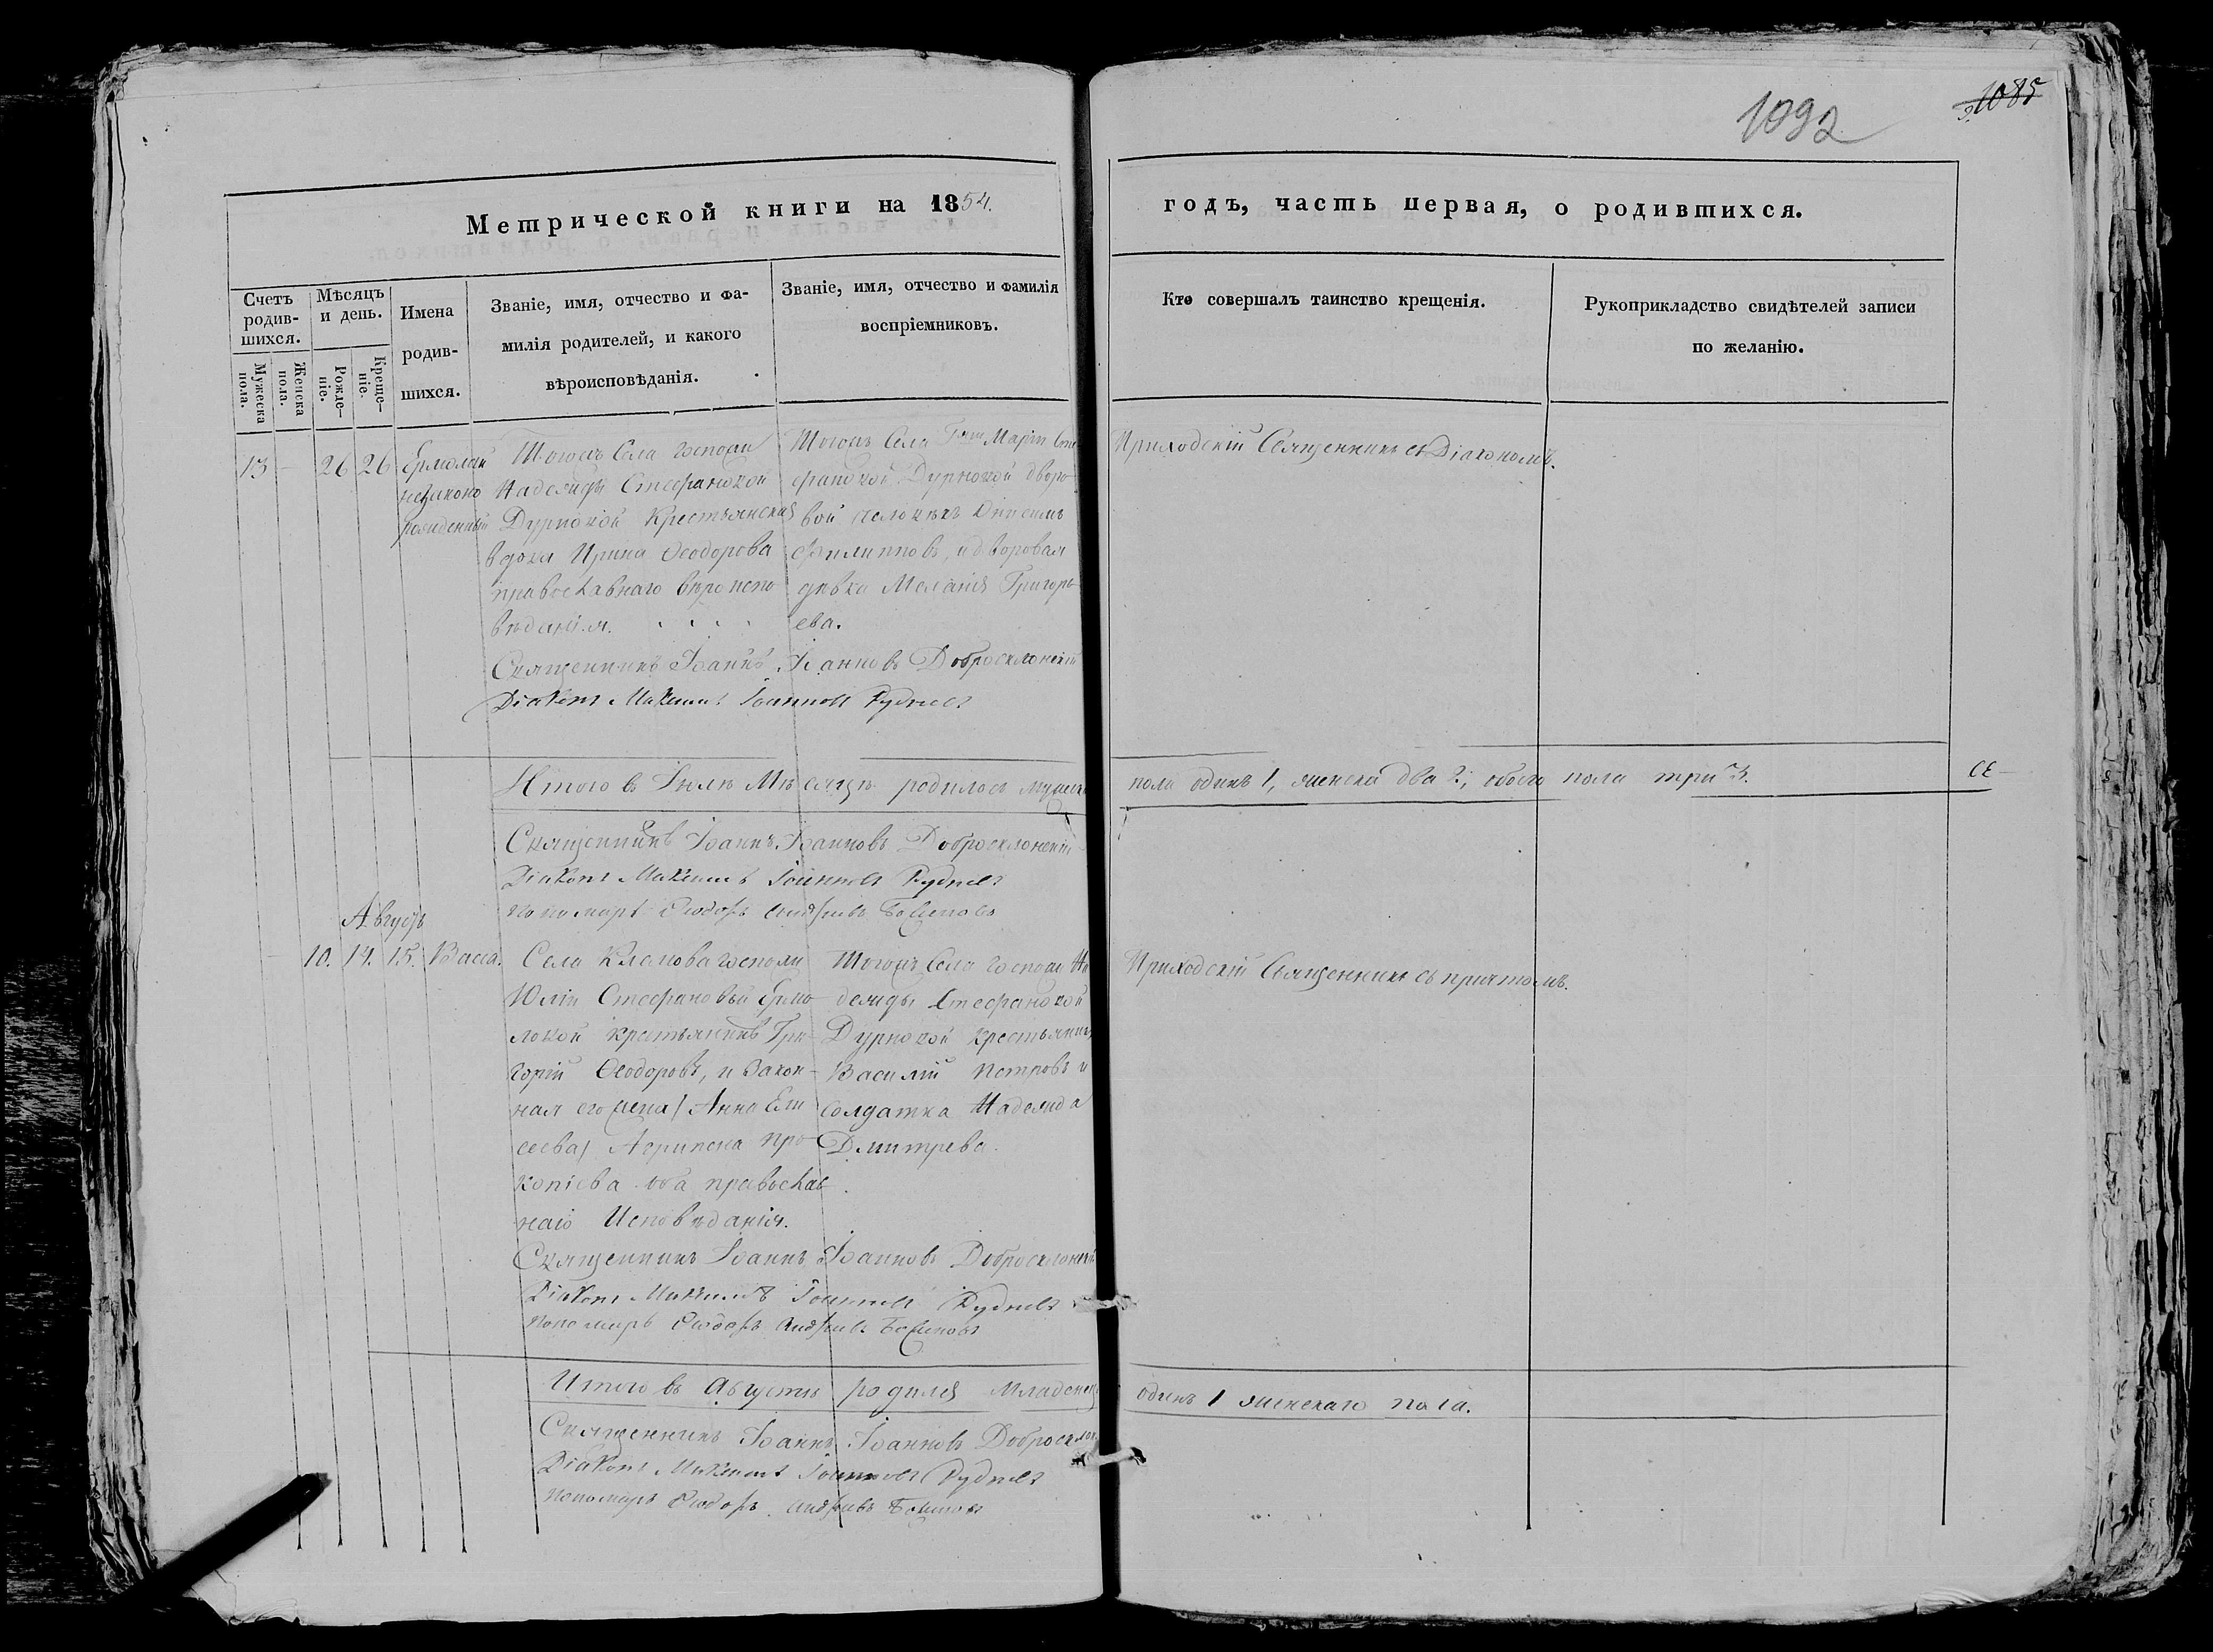 1092
1085
Метрической книги на 1854.
годъ, часть первая, о родившихся.
Счетъ родив-шихся.
Мужеска пола.
Женска пола.
Мѣсяцъ и день.
Рожде-ніе.
Креще-ніе.
Имена
родив-
шихся.
Званіе, имя, отчество и фа-
милія родителей, и какого
вѣроисповѣданія.
Званіе, имя, отчество и фамилія
воспріемниковъ.
Кто совершалъ таинство крещенія.
Рукоприкладство свидѣтелей записи
по желанію.
13 – 26 26
Ермолай
незаконо
рожденный
Тогожъ Села Госпожи
Надежды Стефановой
Дурновой Крестьянская
вдова Ирина Ѳеодорова
православнаго вѣроиспо
вѣданія.
Тогожъ Села Гжи Маріи Сте
фановой Дурновой дворо
вой человѣкъ
Филипповъ, и дворовая
дѣвка Меланія Григорь
ева.
Приходскій Священникъ съ Діакономъ.
Священникъ Іоаннъ Іоанновъ Доброклонскій
Діаконъ Максимъ Іоанновъ Рудневъ
Итого въ Іюлѣ Мѣсяцѣ родилось мужеска
пола одинъ 1, женска два 2, обоего пола три 3.
Священникъ Іоаннъ Іоанновъ Доброклонскій
Діаконъ Максимъ Іоанновъ Рудневъ
Пономарь Ѳеодоръ Андреевъ
Августъ
– 10. 14. 15. Васса.
Села Клемова госпожи
Юліи Стефановой Ермо
ловой крестьянинъ Гри
горій Ѳеодоровъ, и Закон-
ная его жена (Анна Ели
сеева) Агрипена Про
копіева оба православ
наго Исповѣданія.
Тогожъ Села госпожи На
дежды Стефановой
Дурновой крестьянинъ
Василій Петровъ и
солдатка Надежда
Дмитрева.
Приходскій Священникъ съ причтомъ.
Священникъ Іоаннъ Іоанновъ Доброклонскій
Діаконъ Максимъ Іоанновъ Рудневъ
Пономарь Ѳеодоръ Андреевъ
Итого въ Августѣ родился Младенецъ
одинъ 1 женскаго пола.
Священникъ Іоаннъ Іоанновъ Доброклон
Діаконъ Максимъ Іоанновъ Рудневъ
Пономарь Ѳеодоръ Андреевъ